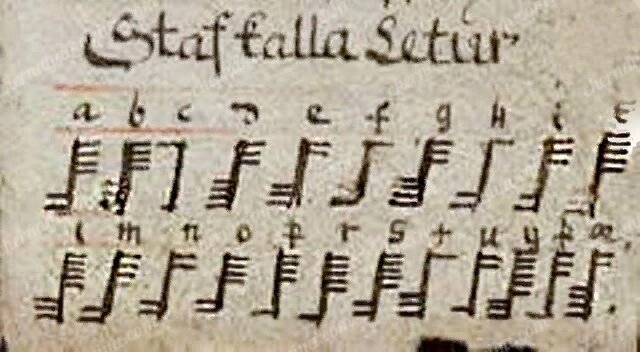 Staf kalla Letur
a b c d e f g h i k
l m n o p r s t u y þ æ.